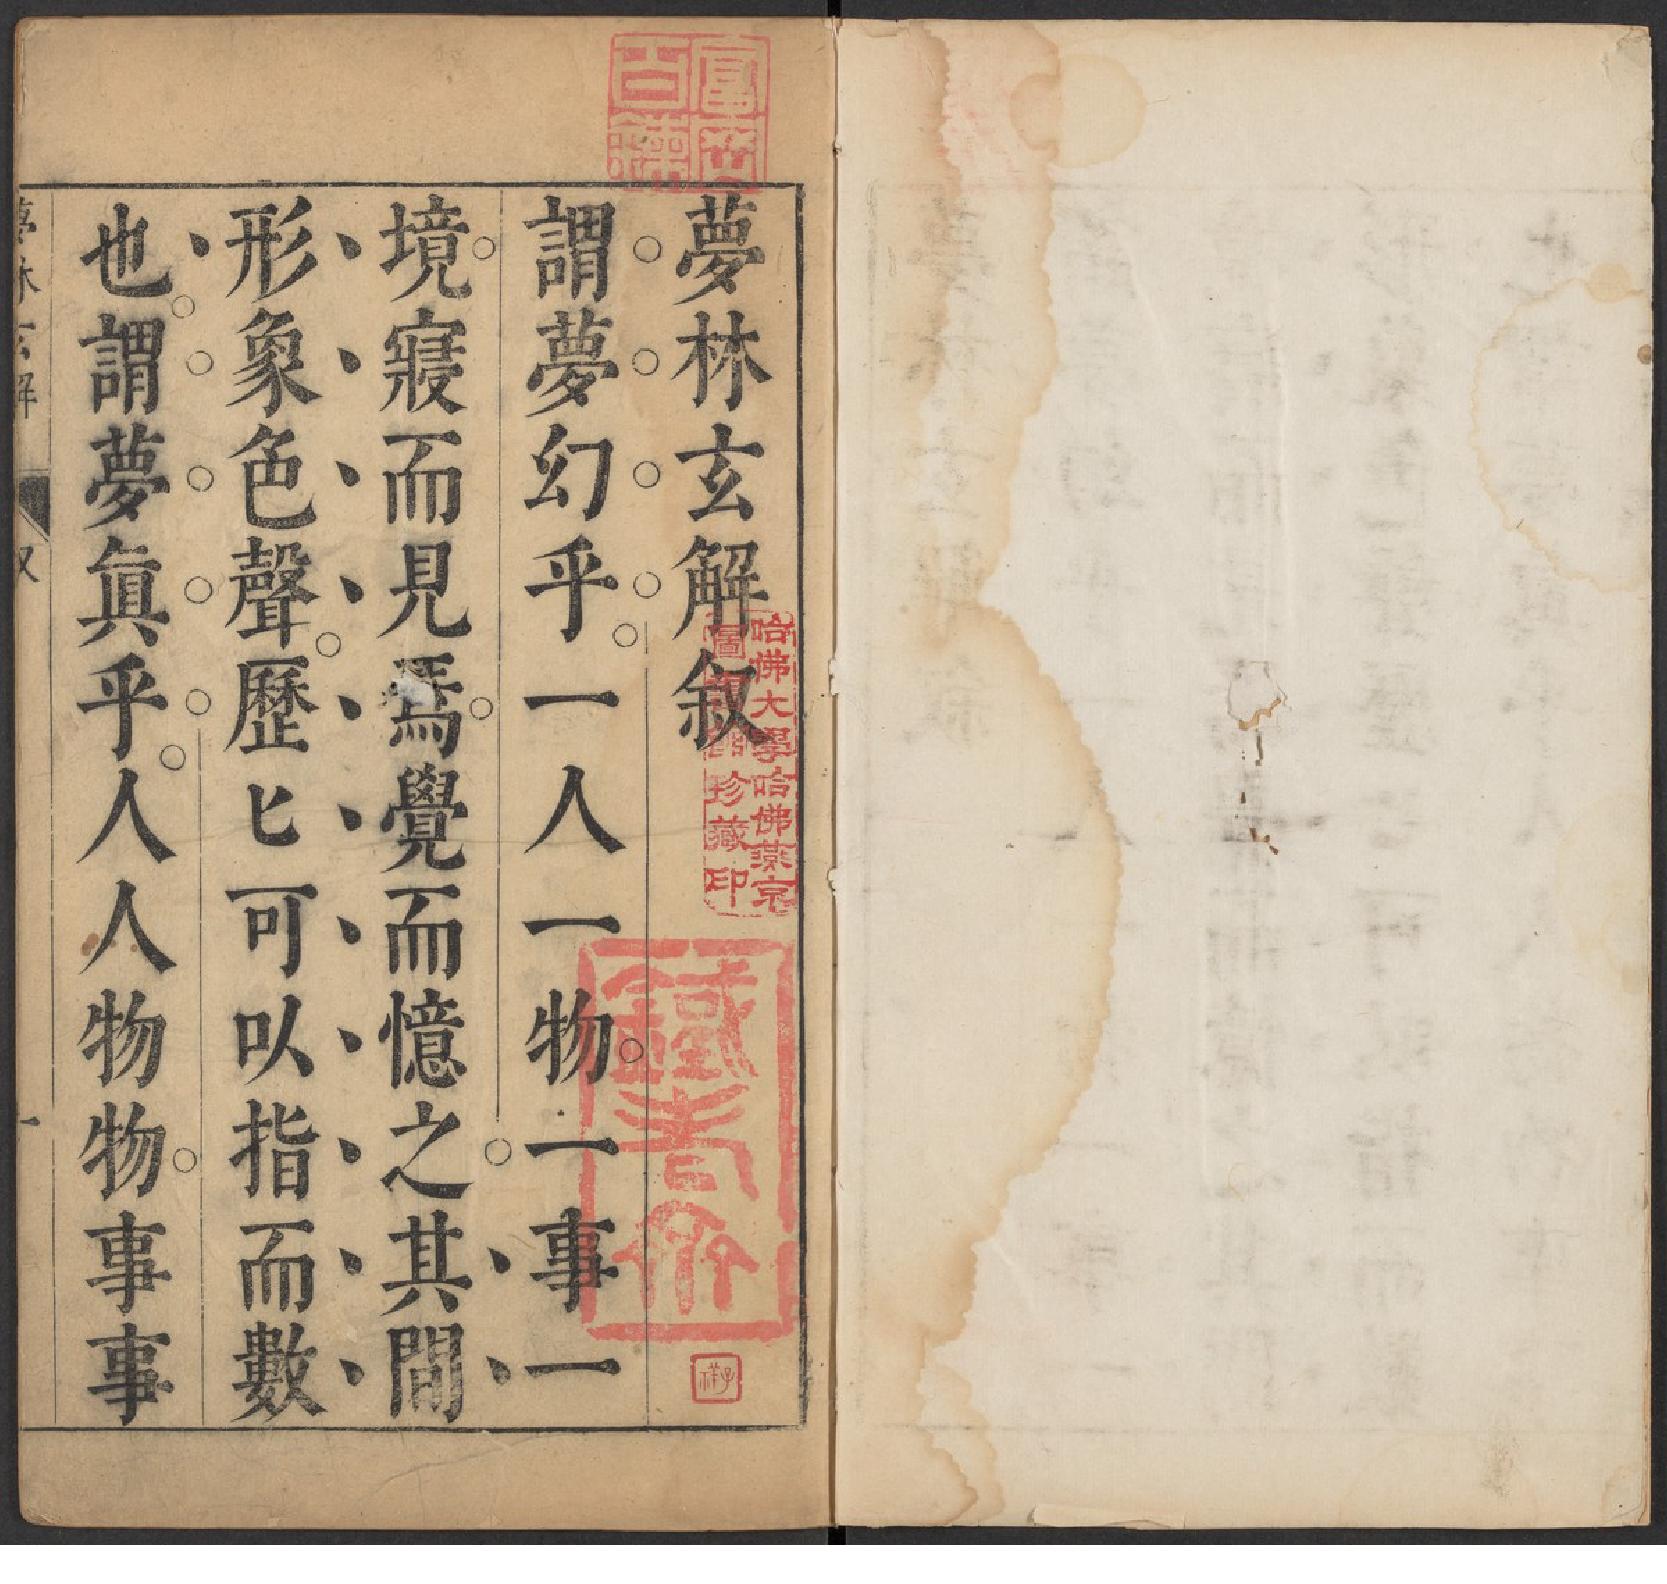 夢林玄解叙
謂夢幻乎一人一物一事一
境寢而見焉覺而憶之其間
形象色聲歷匕可以指而數
也謂夢眞乎人人物物事事
叙
一
哈佛大學哈佛燕京
圖書館珍藏印